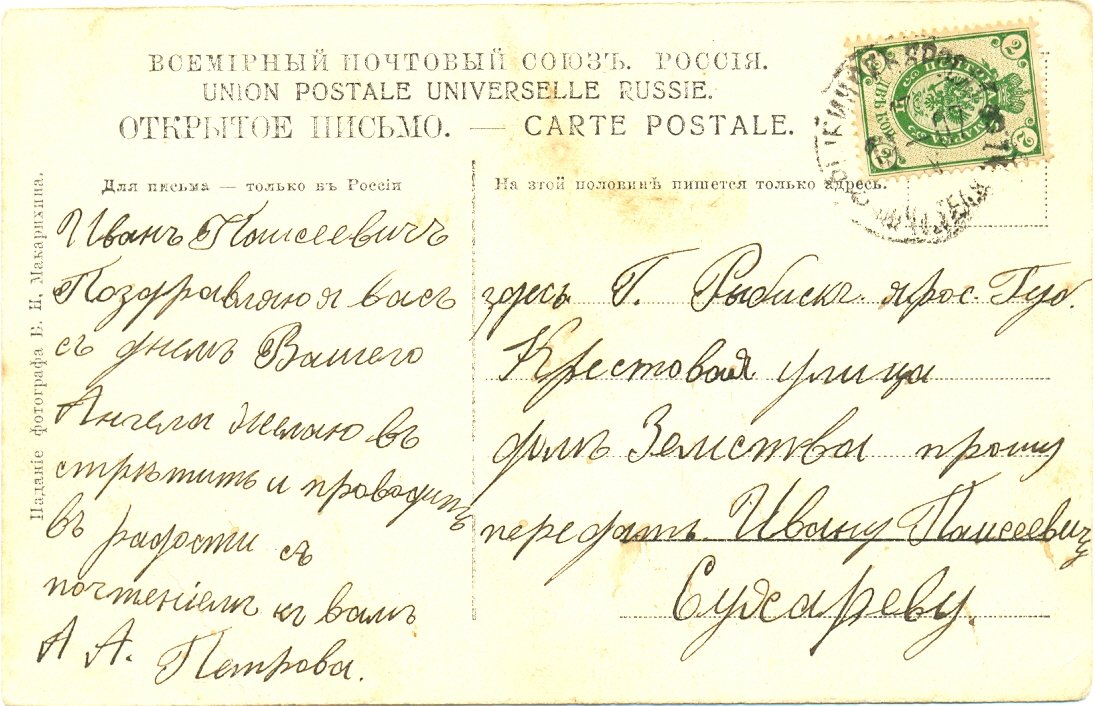 ВСЕМІРНЫЙ ПОЧТОВЫЙ СОЮЗЪ. РОССІЯ.
UNION POSTALE UNIVERSELLE RUSSIE.
ОТКРЫТОЕ ПИСЬМО. — CARTE POSTALE.
Для письма — только въ Россіи
На этой половинѣ пишется только адресъ.
Изданіе фотографа Б. Н. Макарихина.
Иванъ Паисеевичъ
Поздравляю я васъ
съ днемъ Вашего
Ангела Желаю въ
стрѣтить и проводить
въ радости съ
почтеніемъ къ вамъ
А А. Петрова.
здесь Г. Рыбискъ. ярос. Губ.
Крестовая улица
домъ Земства прошу
передать Ивану Паисеевичу
Сухареву.
2
2
2